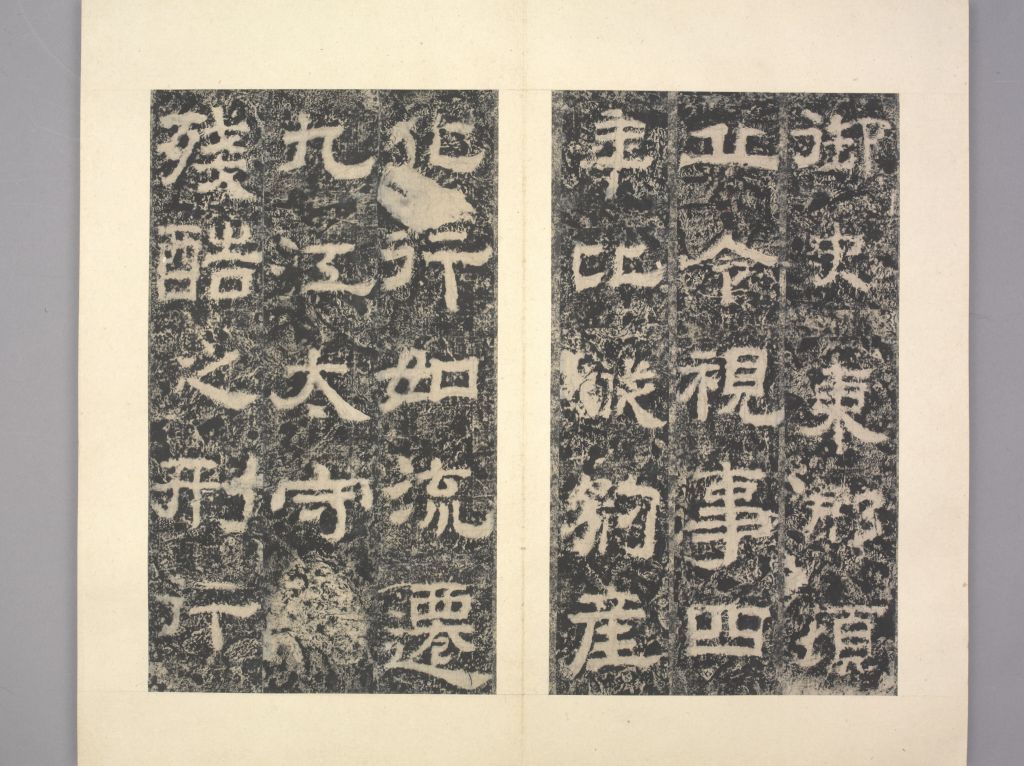 御史東郡頓
丘令視事四
年比縱豹產
化行如流遷
九江太守
殘酷之刑行